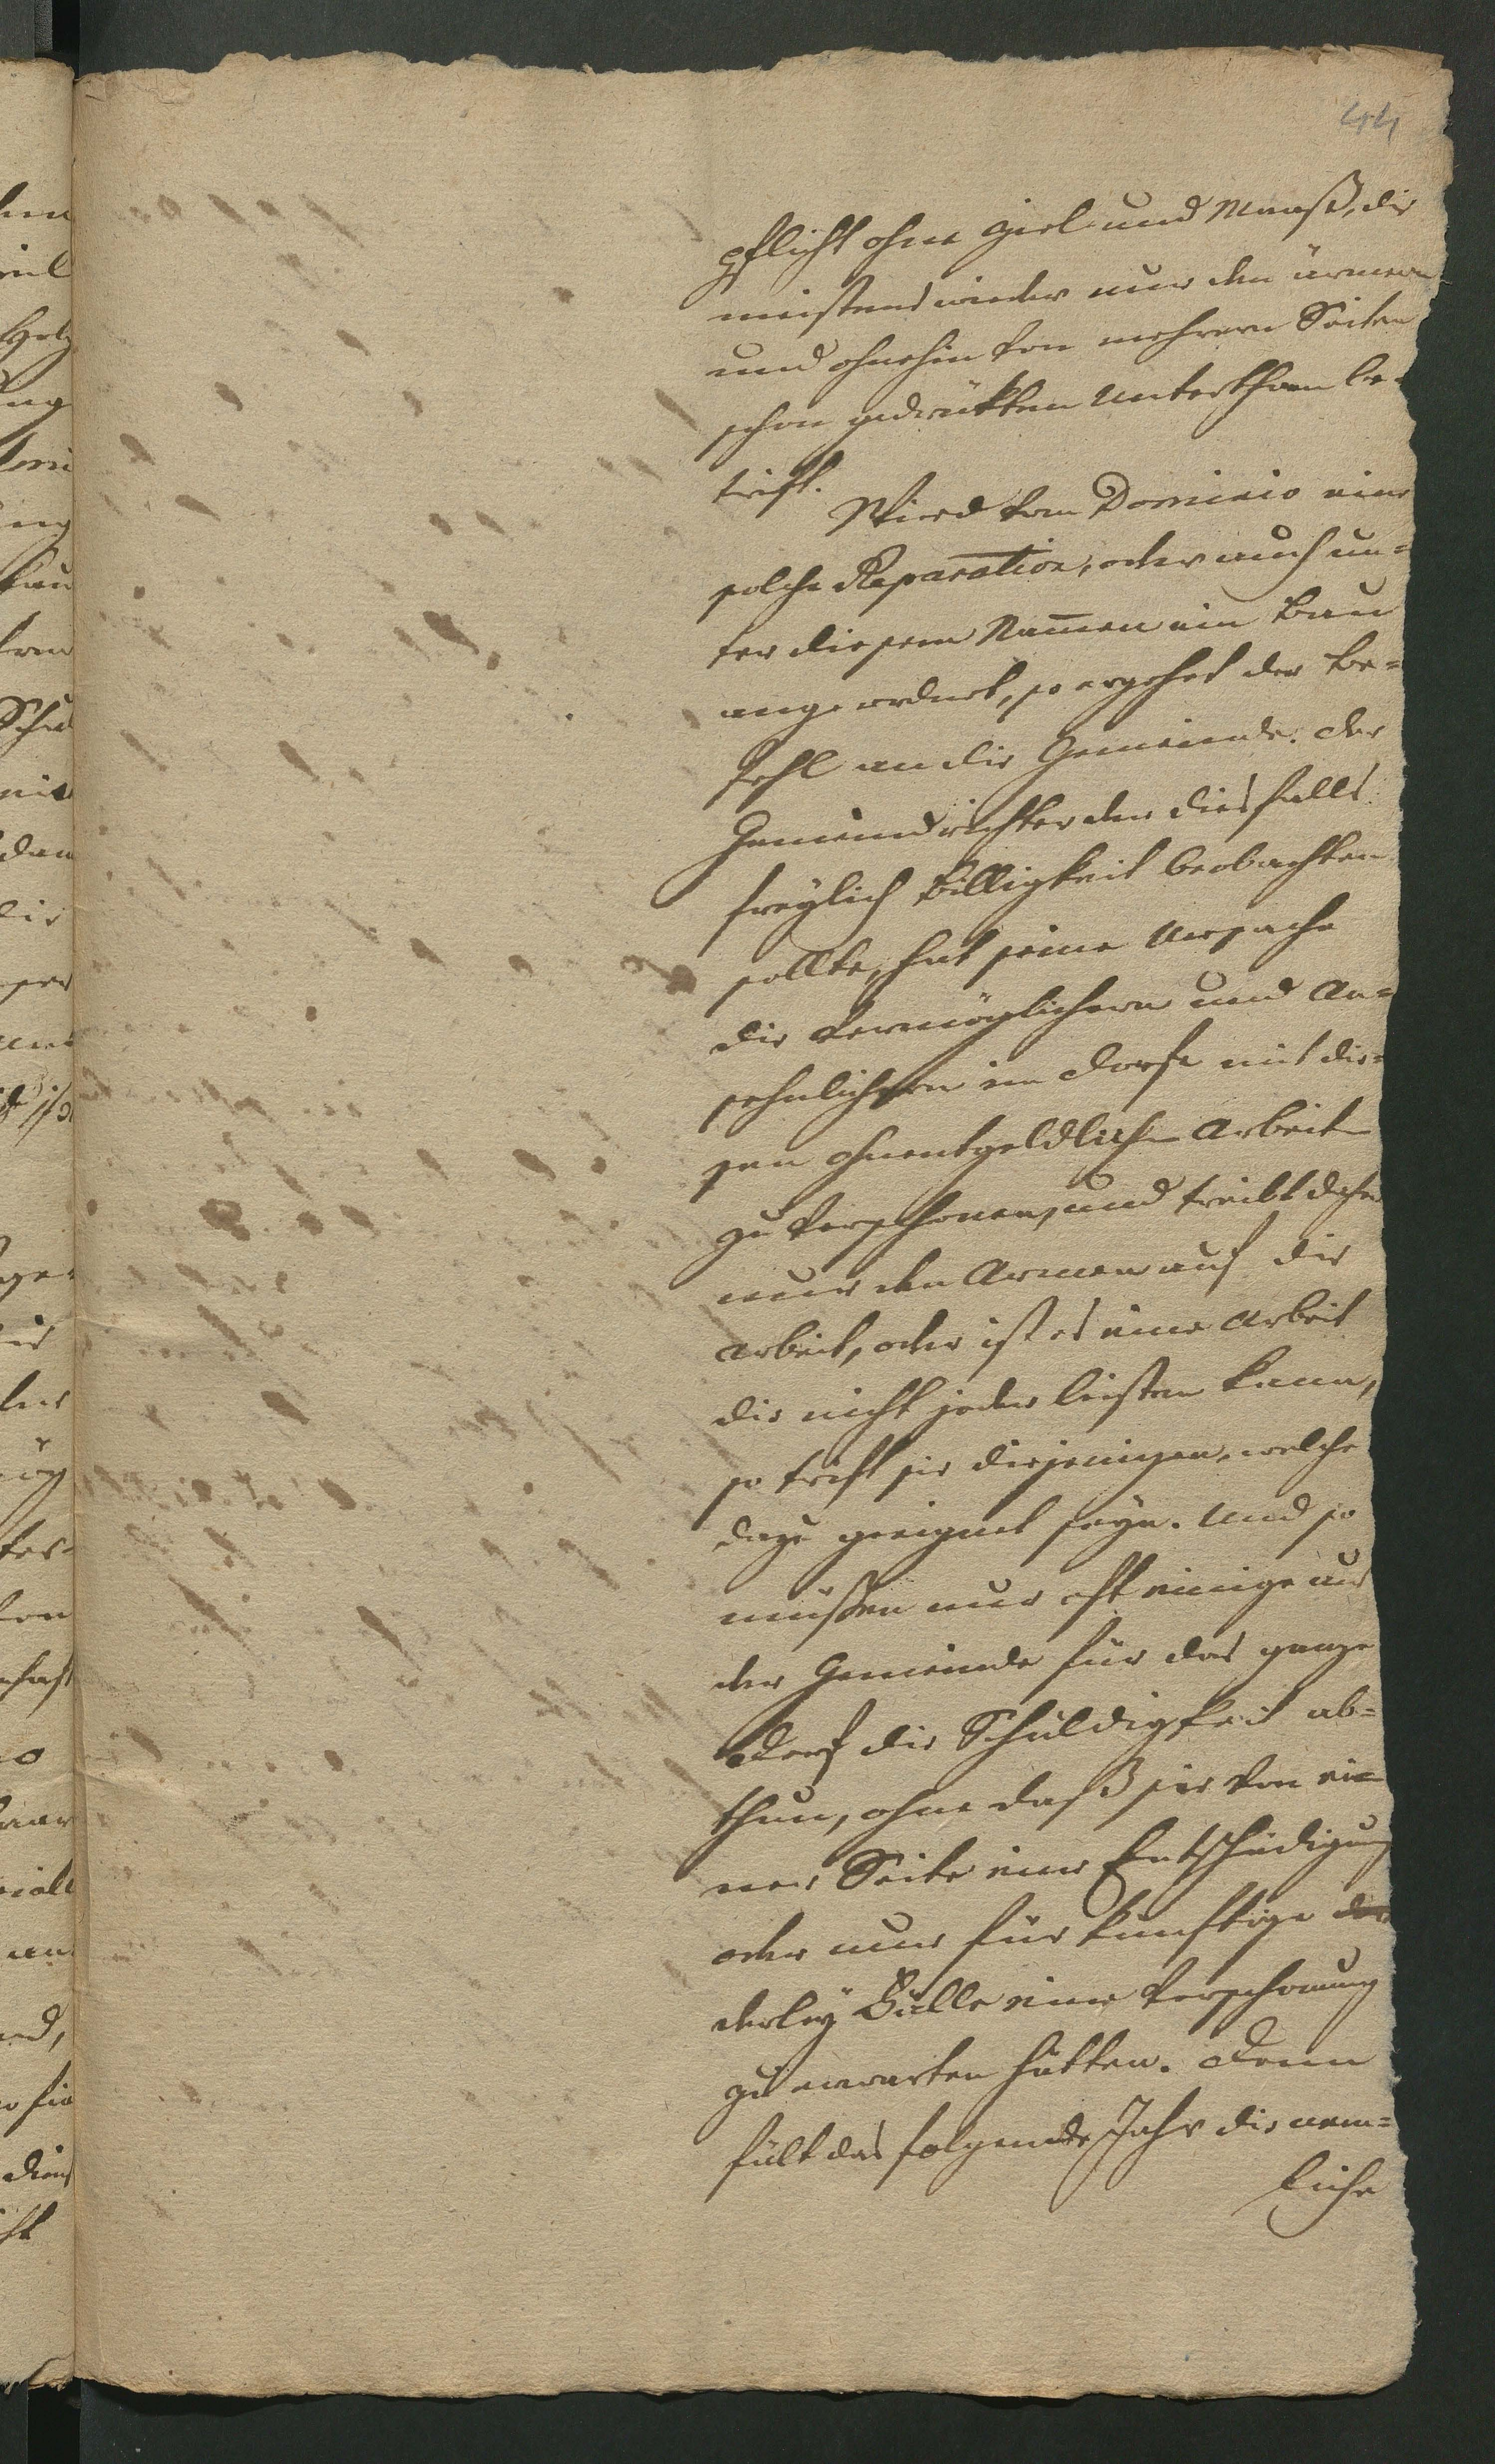 44
pflicht ohne Ziel und Maaß, die
meistens wieder nur den ärmern
und ohnehin von mehrern Seiten
schon gedrükten Unterthan be-
trift.
Wird vom Dominio eine
solche Reparation, oder auch un=
ter diesem Namen ein Bau
angeordnet, so ergehet der Be=
fehl an die Gemeinde. der
Gemeindrichter der diesfalls
freylich Billigkeit beobachten
sollte, hat seine Ursache
die Vermöglichern und An=
sehnlichern im Dorfe mit die=
sen ohnentgeldlichen Arbeiten
zu verschonen, und treibt daher
nur den Armen auf die
Arbeit, oder ist es eine Arbeit
die nicht jeder leisten kann,
so trift sie diejenigen, welche
dazu geeignet seyn. Und so
müßen nur oft einige aus
der Gemeinde für das ganze
Dorf die Schuldigkeit ab=
thun, ohne daß sie von ei=
ner Seite eine Entschädigung
oder nur für künftige
derley Fälle eine Verschonung
zu erwarten hätten. Denn
fält das folgende Jahr die nem=
liche